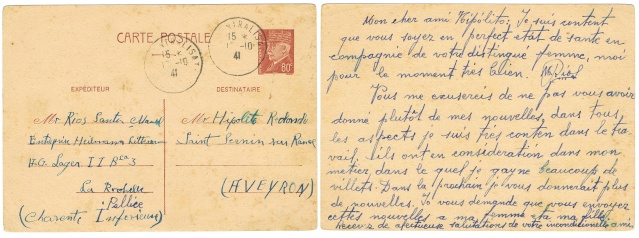 CARTE POSTALE
CENTRALISAT
15 *
-10
41
15 *
-10
41
80c
EXPÉDITEUR
DESTINATAIRE
Mr Rios Santos
Entreprise
H.G. Lager II Bca 3
La Rochelle
Pallice
(Charente Inferieure)
Mr Hipolito Redondo
Saint Sernin sur Rance
(AVEYRON)
Mon cher ami Hipólito; Je suis content
que vous soyez en perfect état de santé en
compagnie de votre distingué femme, moi
pour le moment très bien. Rios
Vous me excusereis de ne pas vous avoir
donné plutôt de mes nouvelles, dans tous
les aspects je suis tres conten dans le tra-
vail, ils ont en consideration dans mon
metier, dans le quel je gagne beaucoup de
villets. Dans la prochain j'vous donnerait plus
de nouvelles. Je vous demande que vous envoyez
cettes nouvelles a ma femme et a ma fille.
Recevez de afectueuse salutations de votre inconditionele ami